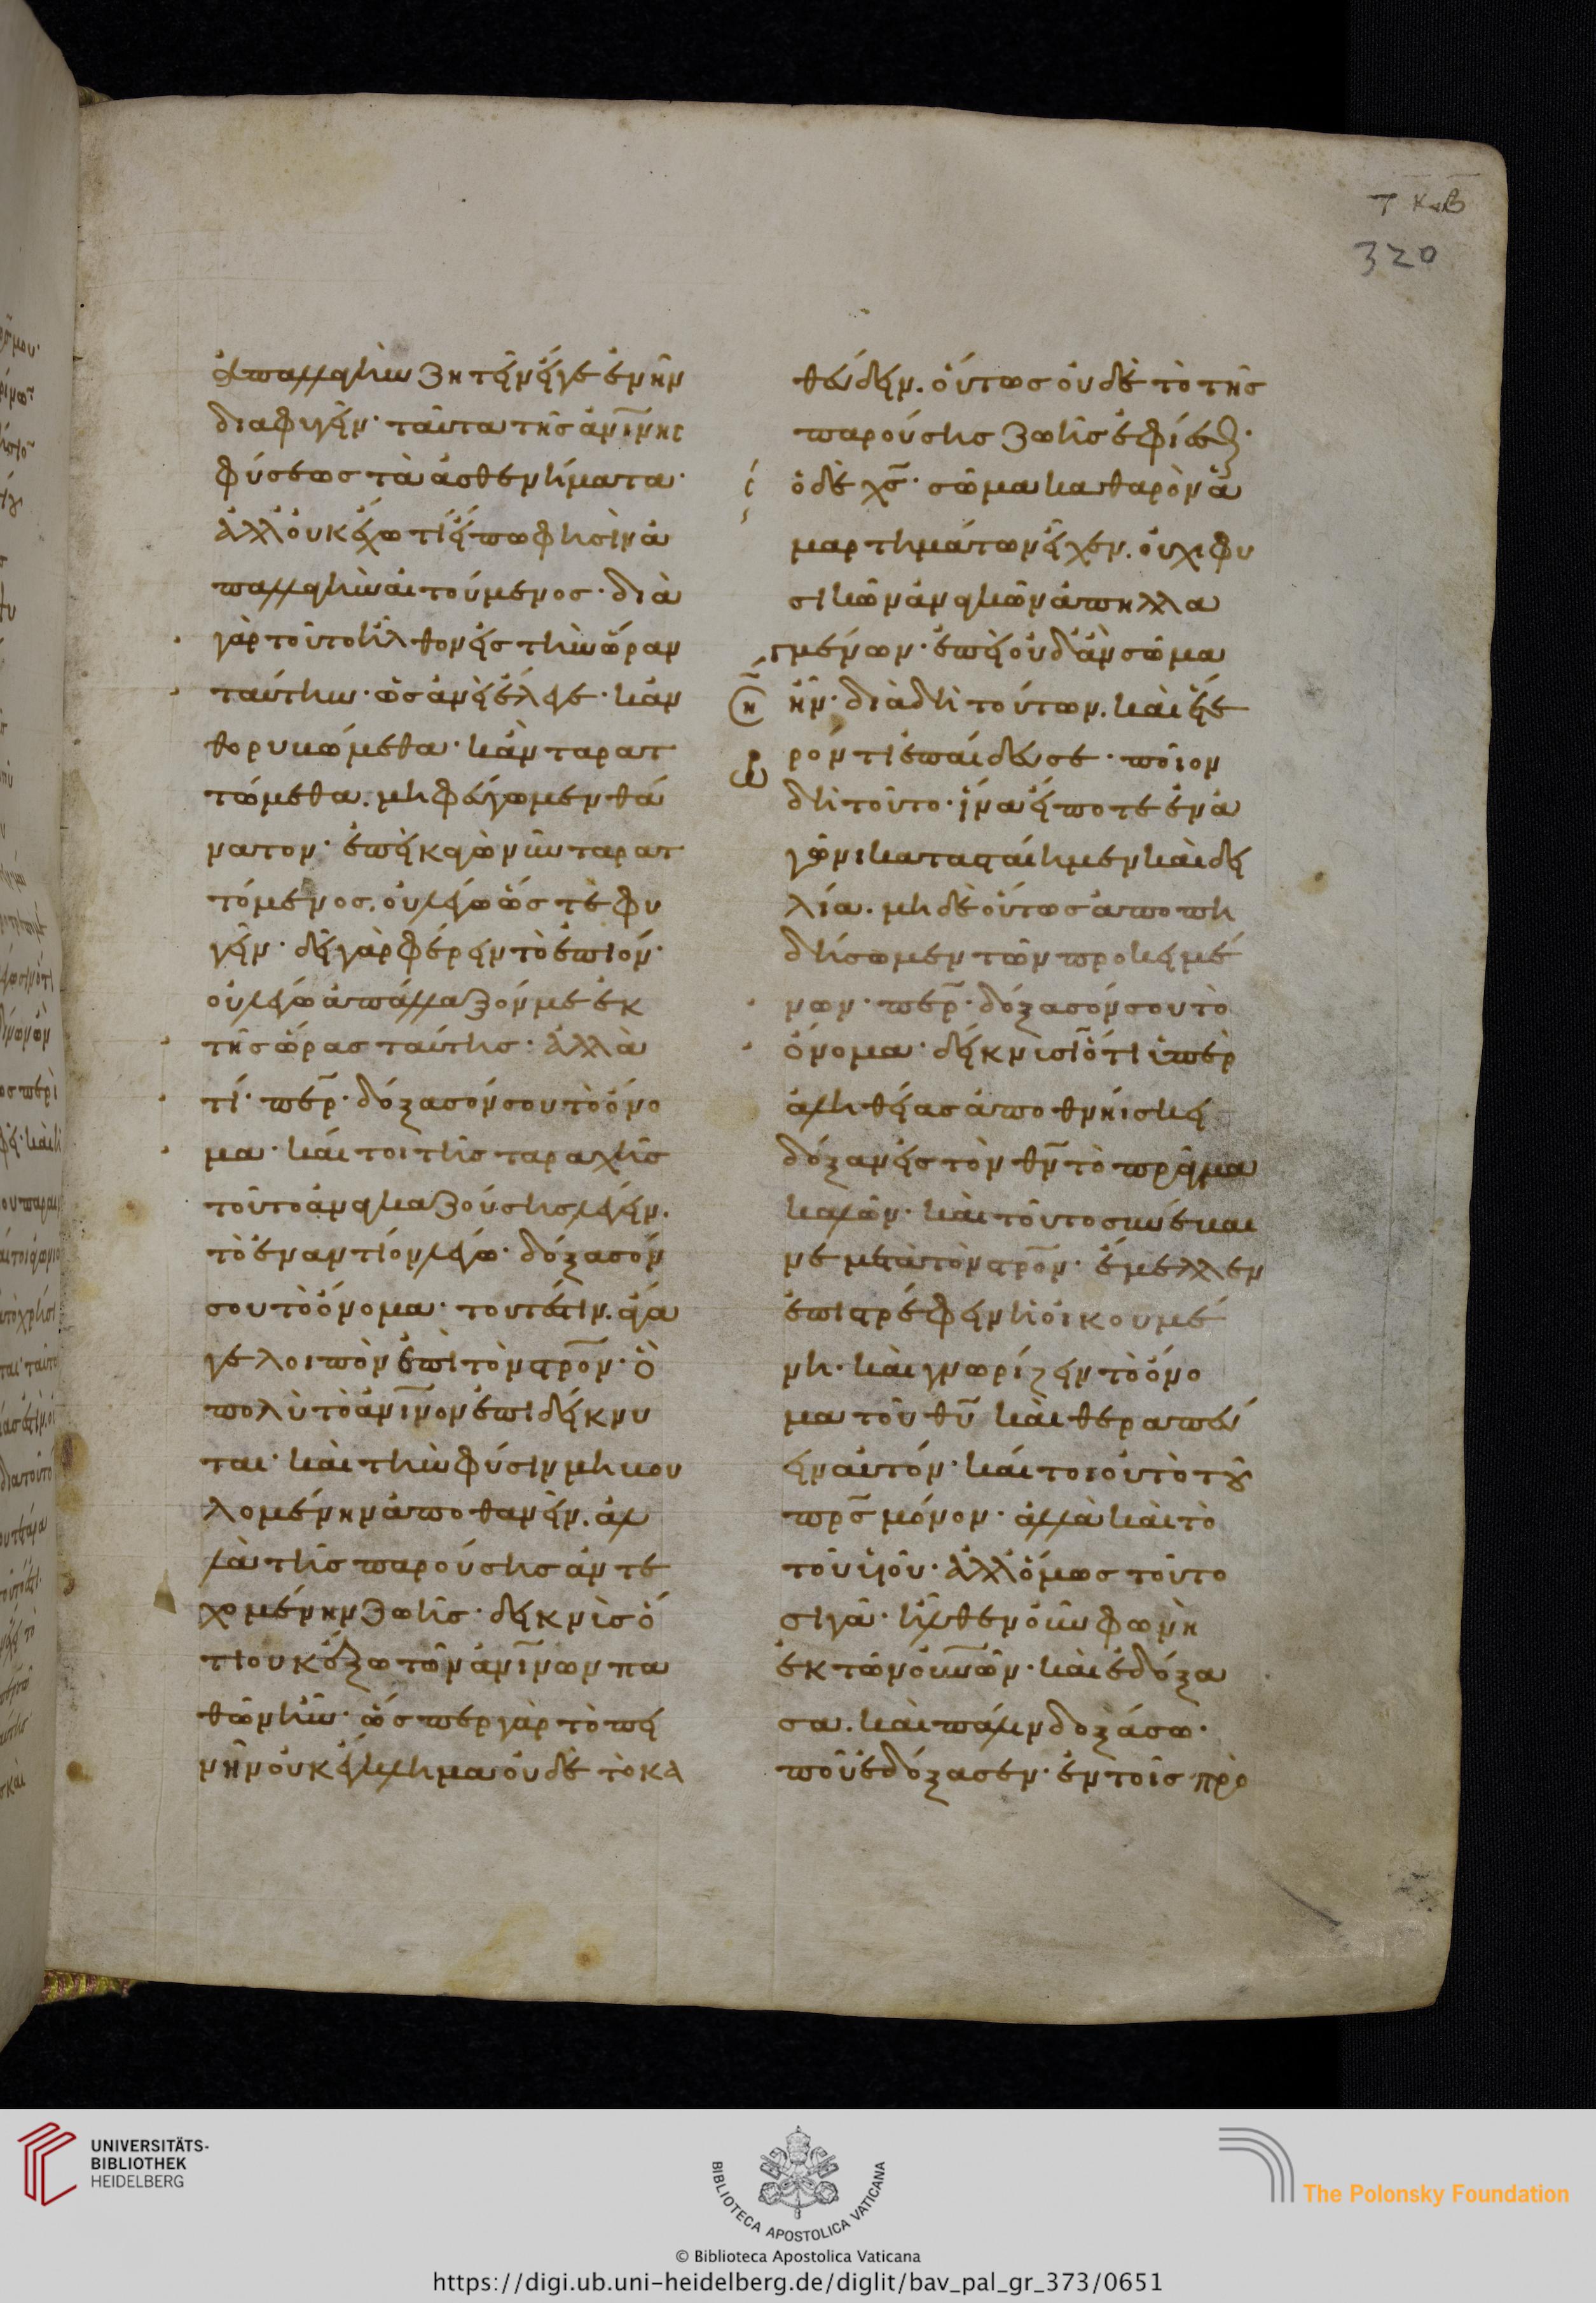 τκβ
320
ἀπαλλαγὴν ζητεῖν εἴγε ἐνῆν
διαφυγεῖν· ταῦτα τῆς ἀνίνης
φύσεως τὰ ἀσθενήματα·
ἀλλ' οὐκ ἔχω τί εἴπω φησὶν ἀ
παλλαγὴν αἰτούμενος· διὰ
γὰρ τοῦτο ἦλθον εἰς τὴν ὥραν
ταύτην· ὡσανεὶ ἔλεγε· κἂν
θορυβώμεθα· κἂν ταρατ
τώμεθα. μὴ φεύγωμεν θά
νατον· ἐπεὶ κἀγὼ νῦν ταρατ
τόμενος. οὐ λέγω ὥστε φυ
γεῖν· δεῖ γὰρ φέρειν τὸ ἐπιόν·
οὐ λέγω ἀπάλλαξόν με ἐκ
τῆς ὥρας ταύτης· ἀλλὰ
τί· περ· δόξασόν σου τὸ ὄνο
μα· καίτοι τῆς ταραχῆς
τοῦτο ἀναγκαζούσης λέγειν.
τὸ ἐναντίον λέγω· δόξασόν
σου τὸ ὄνομα· τουτέστιν. ἄγα
γε λοιπὸν ἐπὶ τὸν στρον· ὃ
πολὺ τὸ ἀνινον ἐπιδείκνυ
ται· καὶ τὴν φύσιν μὴ βου
λομένην ἀποθανεῖν. ἀλ
λὰ τῆς παρούσης ἀντε
χομένην ζωῆς· δεικνὺς ὅ
τι οὐκ ἔξω τῶν ἀνινων πα
θῶν ἦν· ὥσπερ γὰρ τὸ πει
νῆν οὐκ ἔγκλημα οὐδὲ τὸ κα
θεύδειν. οὕτως οὐδὲ τὸ τῆς
παρούσης ζωῆς ἐφίεσθαι·
ὁ δὲ χς· σῶμα καθαρὸν ἁ
μαρτημάτων εἶχεν. οὐχὶ φυ
σικῶν ἀναγκῶν ἀπηλλα
γμένων· ἐπεὶ οὐδ' ἂν σῶμα
ἦν· διὰ δὴ τούτων. καὶ ἕτε
ρόν τι ἐπαίδευσε· ποῖον
δὴ τοῦτο· ἵνα εἴποτε ἐν ἀ
γῶνι κατασταίημεν καὶ δει
λία. μηδὲ οὕτως ἀποπη
δήσωμεν τῶν προκειμέ
νων· περ· δόξασόν σου τὸ
ὄνομα· δείκνυσιν ὅτι ὑπὲρ
ἀληθείας ἀποθνήσκει
δόξαν εἰς τὸν θν τὸ πρᾶγμα
καλῶν· καὶ τοῦτο συνέβαι
νε μετὰ τὸν στρον· ἔμελλεν
ἐπιστρέφειν ἡ οἰκουμέ
νη· καὶ γνωρίζειν τὸ ὄνο
μα τοῦ θυ καὶ θεραπεύ
ειν αὐτόν· καίτοι οὐ τὸ τοῦ
πρς μόνον· ἀλλὰ καὶ τὸ
τοῦ υἱοῦ· ἀλλ' ὅμως τοῦτο
σιγᾷ· ἦλθεν οὖν φωνὴ
ἐκ τῶν οὐνῶν· καὶ ἐδόξα
σα. καὶ πάλιν δοξάσω·
ποῦ ἐδόξασεν· ἐν τοῖς πρὸ
UNIVERSITÄTS-
BIBLIOTHEK
HEIDELBERG
BIBLIOTECA APOSTOLICA VATICANA
The Polonsky Foundation
© Biblioteca Apostolica Vaticana
https://digi.ub.uni-heidelberg.de/diglit/bav_pal_gr_373/0651